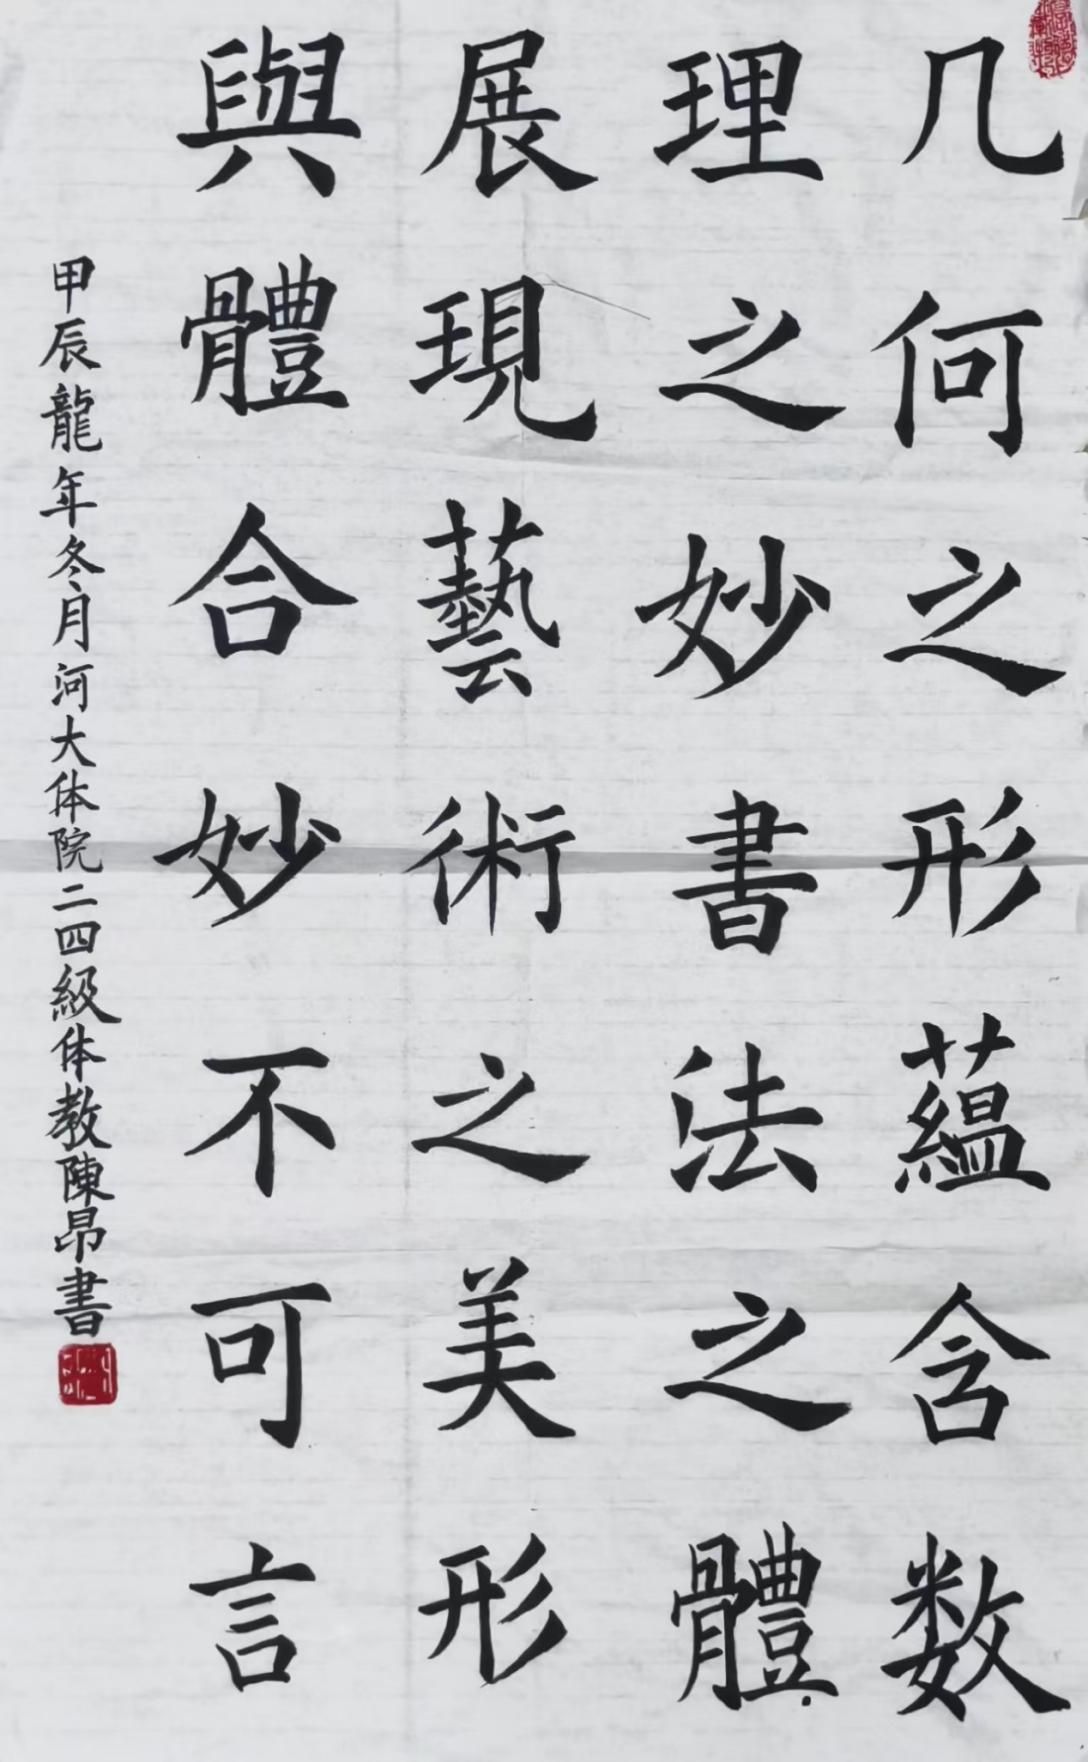 几何之形蘊含数
理之妙書法之體
展現藝術之美形
與體合妙不可言
甲辰龍年冬月河大体院二四級体教陳昂書